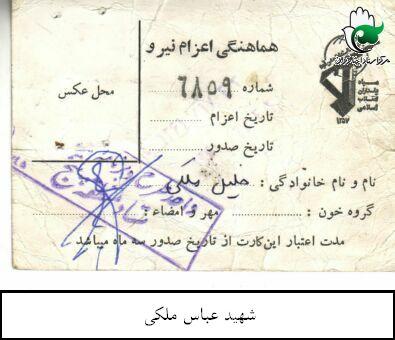 هماهنگی اعزام نیرو
شماره ۶۸۵۹
محل عکس
تاریخ اعزام
تاریخ صدور
نام و نام خانوادگی: خلیل ملکی
گروه خون: مهر و امضاء:
مدت اعتبار این کارت از تاریخ صدور سه ماه میباشد
سپاه
پاسداران
انقلاب
اسلامی
۱۳۵۷
شهید عباس ملکی